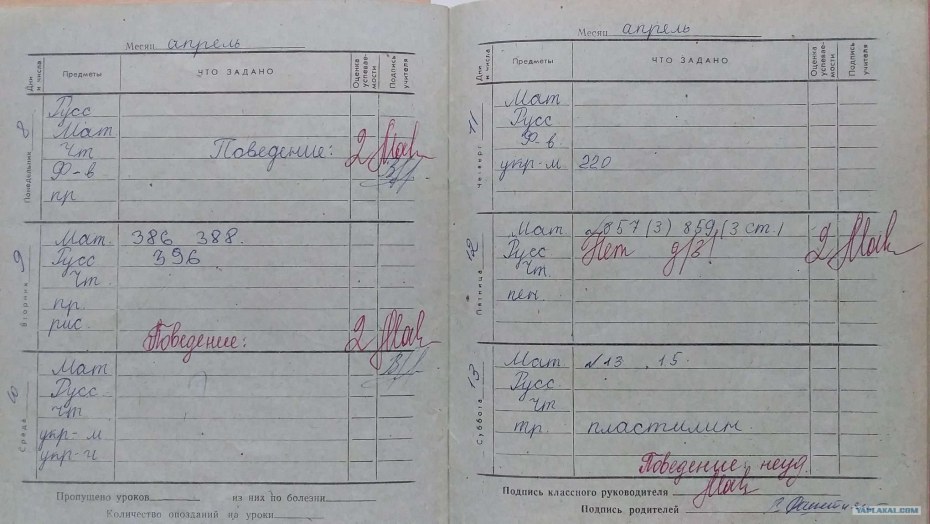 Месяц апрель
Дни и числа Предметы ЧТО ЗАДАНО Оценка успеваемости Подпись учителя
Понедельник 8
Русс
Мат
Чт Поведение: 2
Ф-в
пр
Вторник 9
Мат. 386 388.
Русс 396
Чт.
пр.
рис.
Поведение: 2
Среда 10
Мат
Русс
Чт
укр-м
укр-ч
Пропущено уроков из них по болезни
Количество опозданий на уроки
Месяц апрель
Дни и числа Предметы ЧТО ЗАДАНО Оценка успеваемости Подпись учителя
Четверг 11
Мат
Русс
Ф-в.
укр-м 220
Пятница 12
Мат 857 (3) 859 (3 ст.)
Русс Нет д/з! 2
Чт.
пен.
Суббота 13
Мат №13 15.
Русс
Чт
тр. пластилин.
Поведение: неуд.
Подпись классного руководителя
Подпись родителей
YAPLAKAL.COM